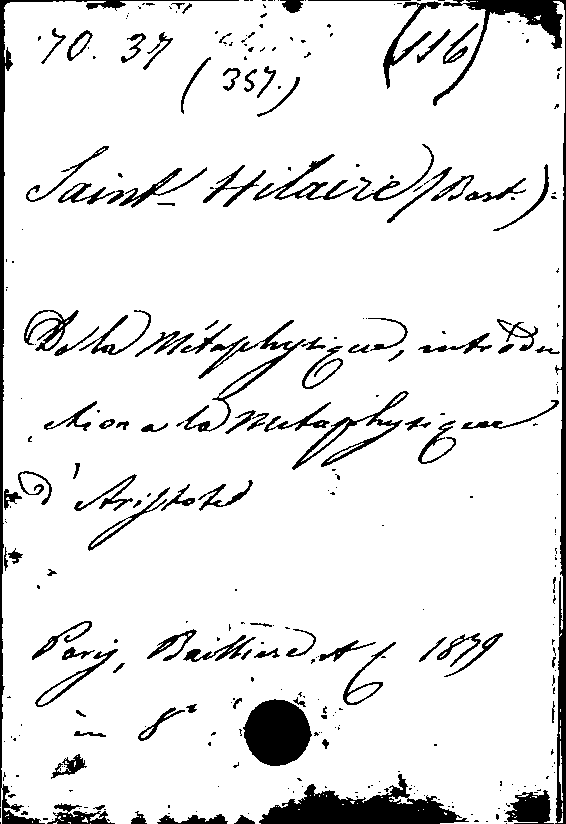 70. 37 (116)
(357.)
Saint-Hilaire (Bart.)
De la Métaphysique, introdu
ction a la Metaphysique
d'Aristote
Paris, Baillière, 1879
in 8°